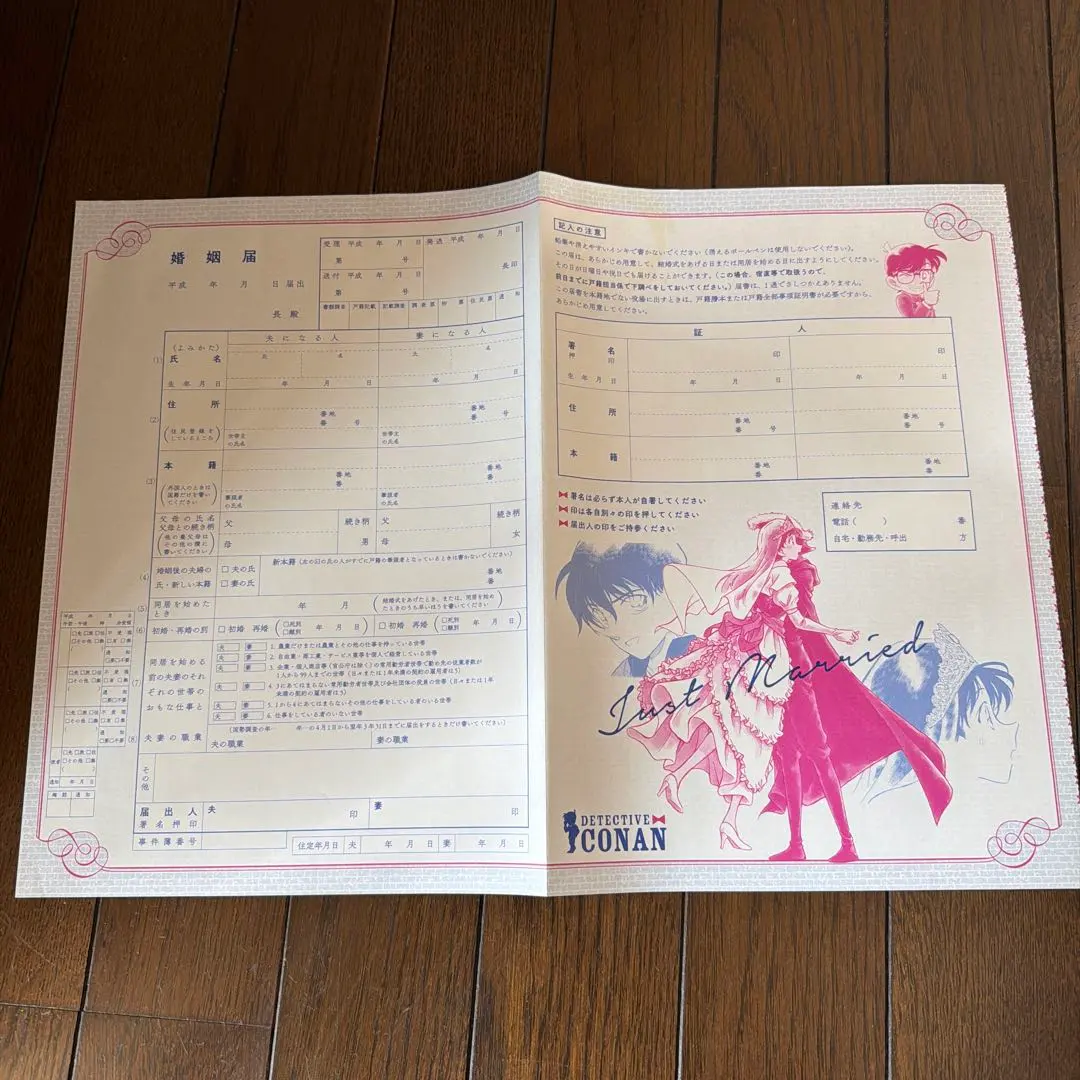 婚姻届
平成 年 月 日届出
長殿
受理 平成 年 月 日
第 号
発送 平成 年 月 日
送付 平成 年 月 日
第 号
長印
書類調査 戸籍記載 記載調査 調査票 附票 住民票 通知
夫になる人 妻になる人
(1)
(よみかた)
氏名
氏 名 氏 名
生年月日 年 月 日 年 月 日
(2)
住所
番地 番地
番 号 番 号
(住民登録をしているところ)
世帯主の氏名 世帯主の氏名
(3)
本籍
番地 番地
番 番
(外国人のときは国籍だけを書いてください)
筆頭者の氏名 筆頭者の氏名
父母の氏名
父母との続き柄
(他の養父母はその他の欄に書いてください)
父 続き柄 父 続き柄
母 男 母 女
(4)
婚姻後の夫婦の氏・新しい本籍
□夫の氏
□妻の氏
新本籍(左の☑の氏の人がすでに戸籍の筆頭者となっているときは書かないでください)
番地
番
(5)
同居を始めたとき
年 月
(結婚式をあげたとき、または、同居を始めたときのうち早いほうを書いてください)
(6)
初婚・再婚の別
□初婚 再婚(□死別 □離別 年 月 日) □初婚 再婚(□死別 □離別 年 月 日)
(7)
同居を始める前の夫妻のそれぞれの世帯のおもな仕事と
夫 妻 1.農業だけまたは農業とその他の仕事を持っている世帯
夫 妻 2.自由業・商工業・サービス業等を個人で経営している世帯
夫 妻 3.企業・個人商店等(官公庁は除く)の常用勤労者世帯で勤め先の従業者数が1人から99人までの世帯(日々または1年未満の契約の雇用者は5)
夫 妻 4.3にあてはまらない常用勤労者世帯及び会社団体の役員の世帯(日々または1年未満の契約の雇用者は5)
夫 妻 5.1から4にあてはまらないその他の仕事をしている者のいる世帯
夫 妻 6.仕事をしている者のいない世帯
(8)
夫妻の職業
(国勢調査の年… 年…の4月1日から翌年3月31日までに届出をするときだけ書いてください)
夫の職業 妻の職業
その他
届出人
署名押印
夫 印 妻 印
事件簿番号
住定年月日 夫 年 月 日 妻 年 月 日
記入の注意
鉛筆や消えやすいインキで書かないでください(消えるボールペンは使用しないでください)。
この届は、あらかじめ用意して、結婚式をあげる日または同居を始める日に出すようにしてください。
その日が日曜日や祝日でも届けることができます。(この場合、宿直等で取扱うので、
前日までに戸籍担当係で下調べをしておいてください。)届書は、1通でさしつかえありません。
この届書を本籍地でない役場に出すときは、戸籍謄本または戸籍全部事項証明書が必要ですから、
あらかじめ用意してください。
証人
署名
押印
印 印
生年月日 年 月 日 年 月 日
住所
番地 番地
番 号 番 号
本籍
番地 番地
番 番
署名は必らず本人が自署してください
印は各自別々の印を押してください
届出人の印をご持参ください
連絡先
電話( ) 番
自宅・勤務先・呼出 方
Just Married
DETECTIVE
CONAN